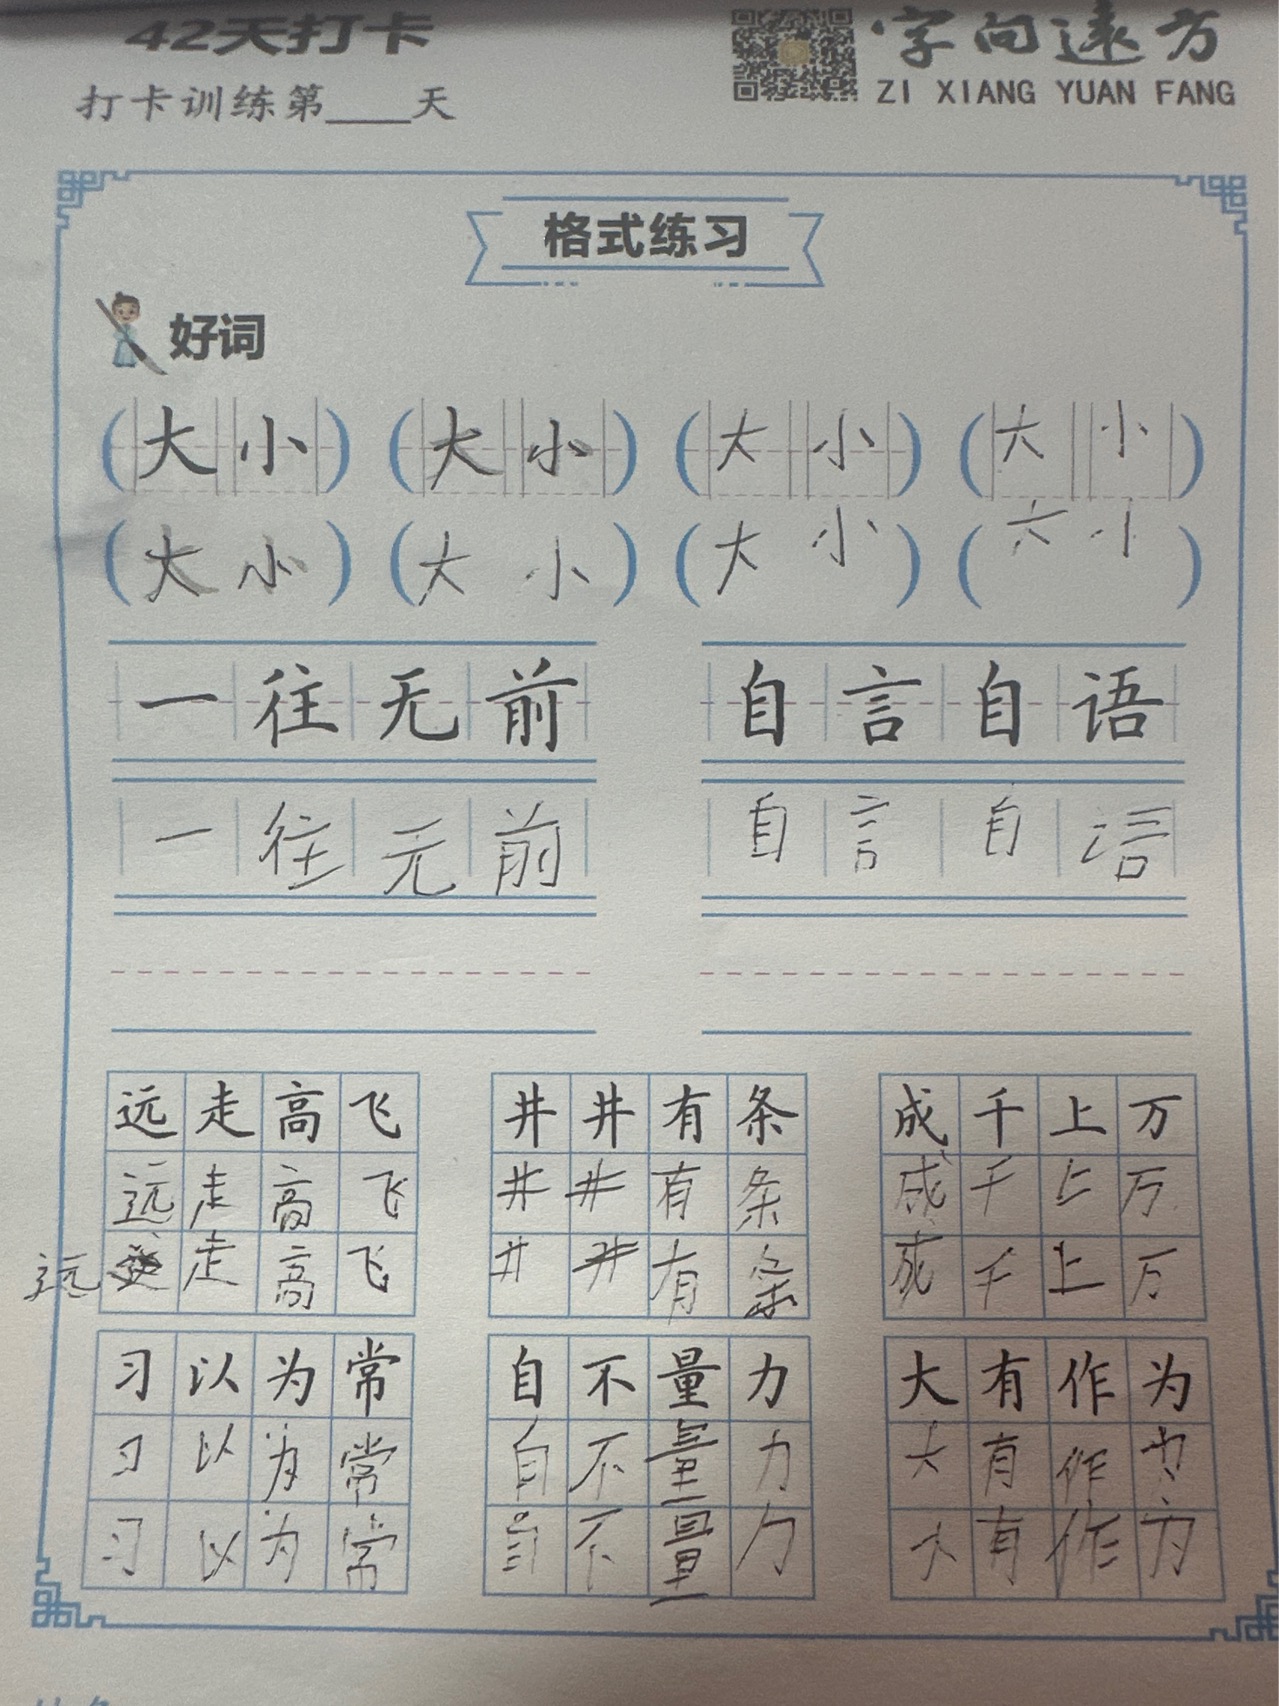 42天打卡
字向远方
打卡训练第____天
ZI XIANG YUAN FANG
格式练习
好词
(大小) (大小) (大小) (大小)
(大小) (大小) (大小) (大小)
一往无前 自言自语
一往无前 自言自语
远走高飞 井井有条 成千上万
远走高飞 井井有条 成千上万
远 走高飞 井井有条 成千上万
习以为常 自不量力 大有作为
习以为常 自不量力 大有作为
习以为常 自不量力 大有作为